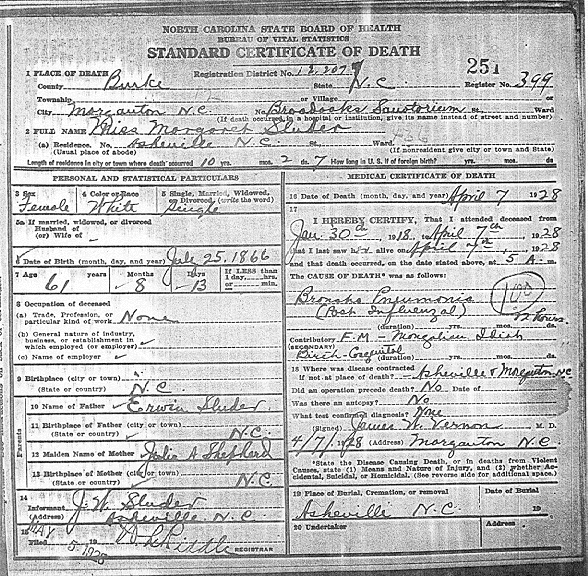 NORTH CAROLINA STATE BOARD OF HEALTH
BUREAU OF VITAL STATISTICS
STANDARD CERTIFICATE OF DEATH
251
1 PLACE OF DEATH
Registration District No. 12.207
County Burke State N.C Register No. 399
Township or Village
City Morganton N.C. No. Broadoaks St. Ward
(If death occurred in a hospital or institution, give its name instead of street and number)
2 FULL NAME Miss Margaret Sluder
(a) Residence. No. Asheville N.C. St. Ward
(Usual place of abode) (If nonresident give city or town and State)
Length of residence in city or town where death occurred 10 yrs. mos. 2 ds. 7 How long in U. S. if of foreign birth? yrs. mos. ds
PERSONAL AND STATISTICAL PARTICULARS
3 Sex Female
4 Color or Race White
5 Single, Married, Widowed, or Divorced, (write the word) Single
5a If married, widowed, or divorced
Husband of
(or) Wife of
6 Date of Birth (month, day, and year) July 25, 1866
7 Age years Months Days If LESS than
61 8 13 1 day, hrs.
or min.
8 Occupation of deceased
(a) Trade, Profession, or
particular kind of work None
(b) General nature of industry,
business, or establishment in
which employed (or employer)
(c) Name of employer
9 Birthplace (city or town)
(State or country) N.C.
Parents
10 Name of Father Erwin Sluder
11 Birthplace of Father (city or town)
(State or country) N.C.
12 Maiden Name of Mother Julia A Shepherd
13 Birthplace of Mother (city or town)
(State or country) N.C.
14
Informant J. W. Sluder
(Address) Asheville N.C.
15
Filed MAY 5 1928 19
REGISTRAR
MEDICAL CERTIFICATE OF DEATH
16 Date of Death (month, day, and year) April 7 1928
17
I HEREBY CERTIFY, That I attended deceased from
Jan. 30th 1918, to April 7th, 1928
that I last saw her alive on April 7th, 1928
and that death occurred, on the date stated above, at 5 A. m.
The CAUSE OF DEATH* was as follows:
Broncho Pneumonia
(Post Influenzal)
100
72 hours
(duration) yrs. mos. ds.
Contributory F.M - Mongolian Idiot
(SECONDARY)
Birth-Congenital
(duration) yrs. mos. ds.
18 Where was disease contracted
if not at place of death? Asheville & Morganton, N.C
Did an operation precede death? No Date of
Was there an autopsy? No
What test confirmed diagnosis? None
(Signed) James W. Vernon M. D.
4/7/1928 (Address) Morganton N.C
*State the Disease Causing Death, or in deaths from Violent
Causes, state (1) Means and Nature of Injury, and (2) whether Accidental, Suicidal, or Homicidal. (See reverse side for additional space.)
19 Place of Burial, Cremation, or removal Date of Burial
Asheville N.C. 19
20 Undertaker Address